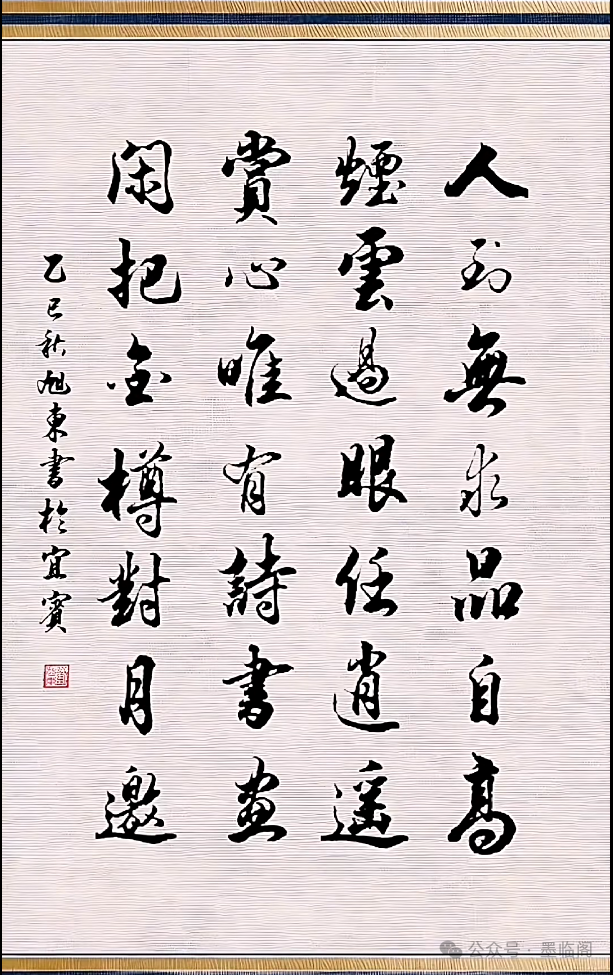 人到無求品自高
煙雲過眼任逍遥
賞心唯有詩書畫
閑把金樽對月邀
乙巳秋旭東書於宜賓
公众号·墨临阁